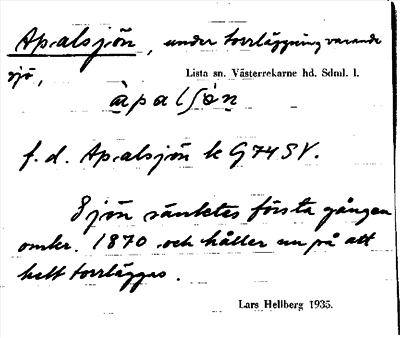 Apalsjön, under torrläggning varande
sjö,
Lista sn. Västerrekarne hd. Sdml. l.
àpalʃȯn
f.d. Apalsjön k G74SV.
Sjön sänktes första gången
omkr. 1870 och håller nu på att
helt torrläggas.
Lars Hellberg 1935.